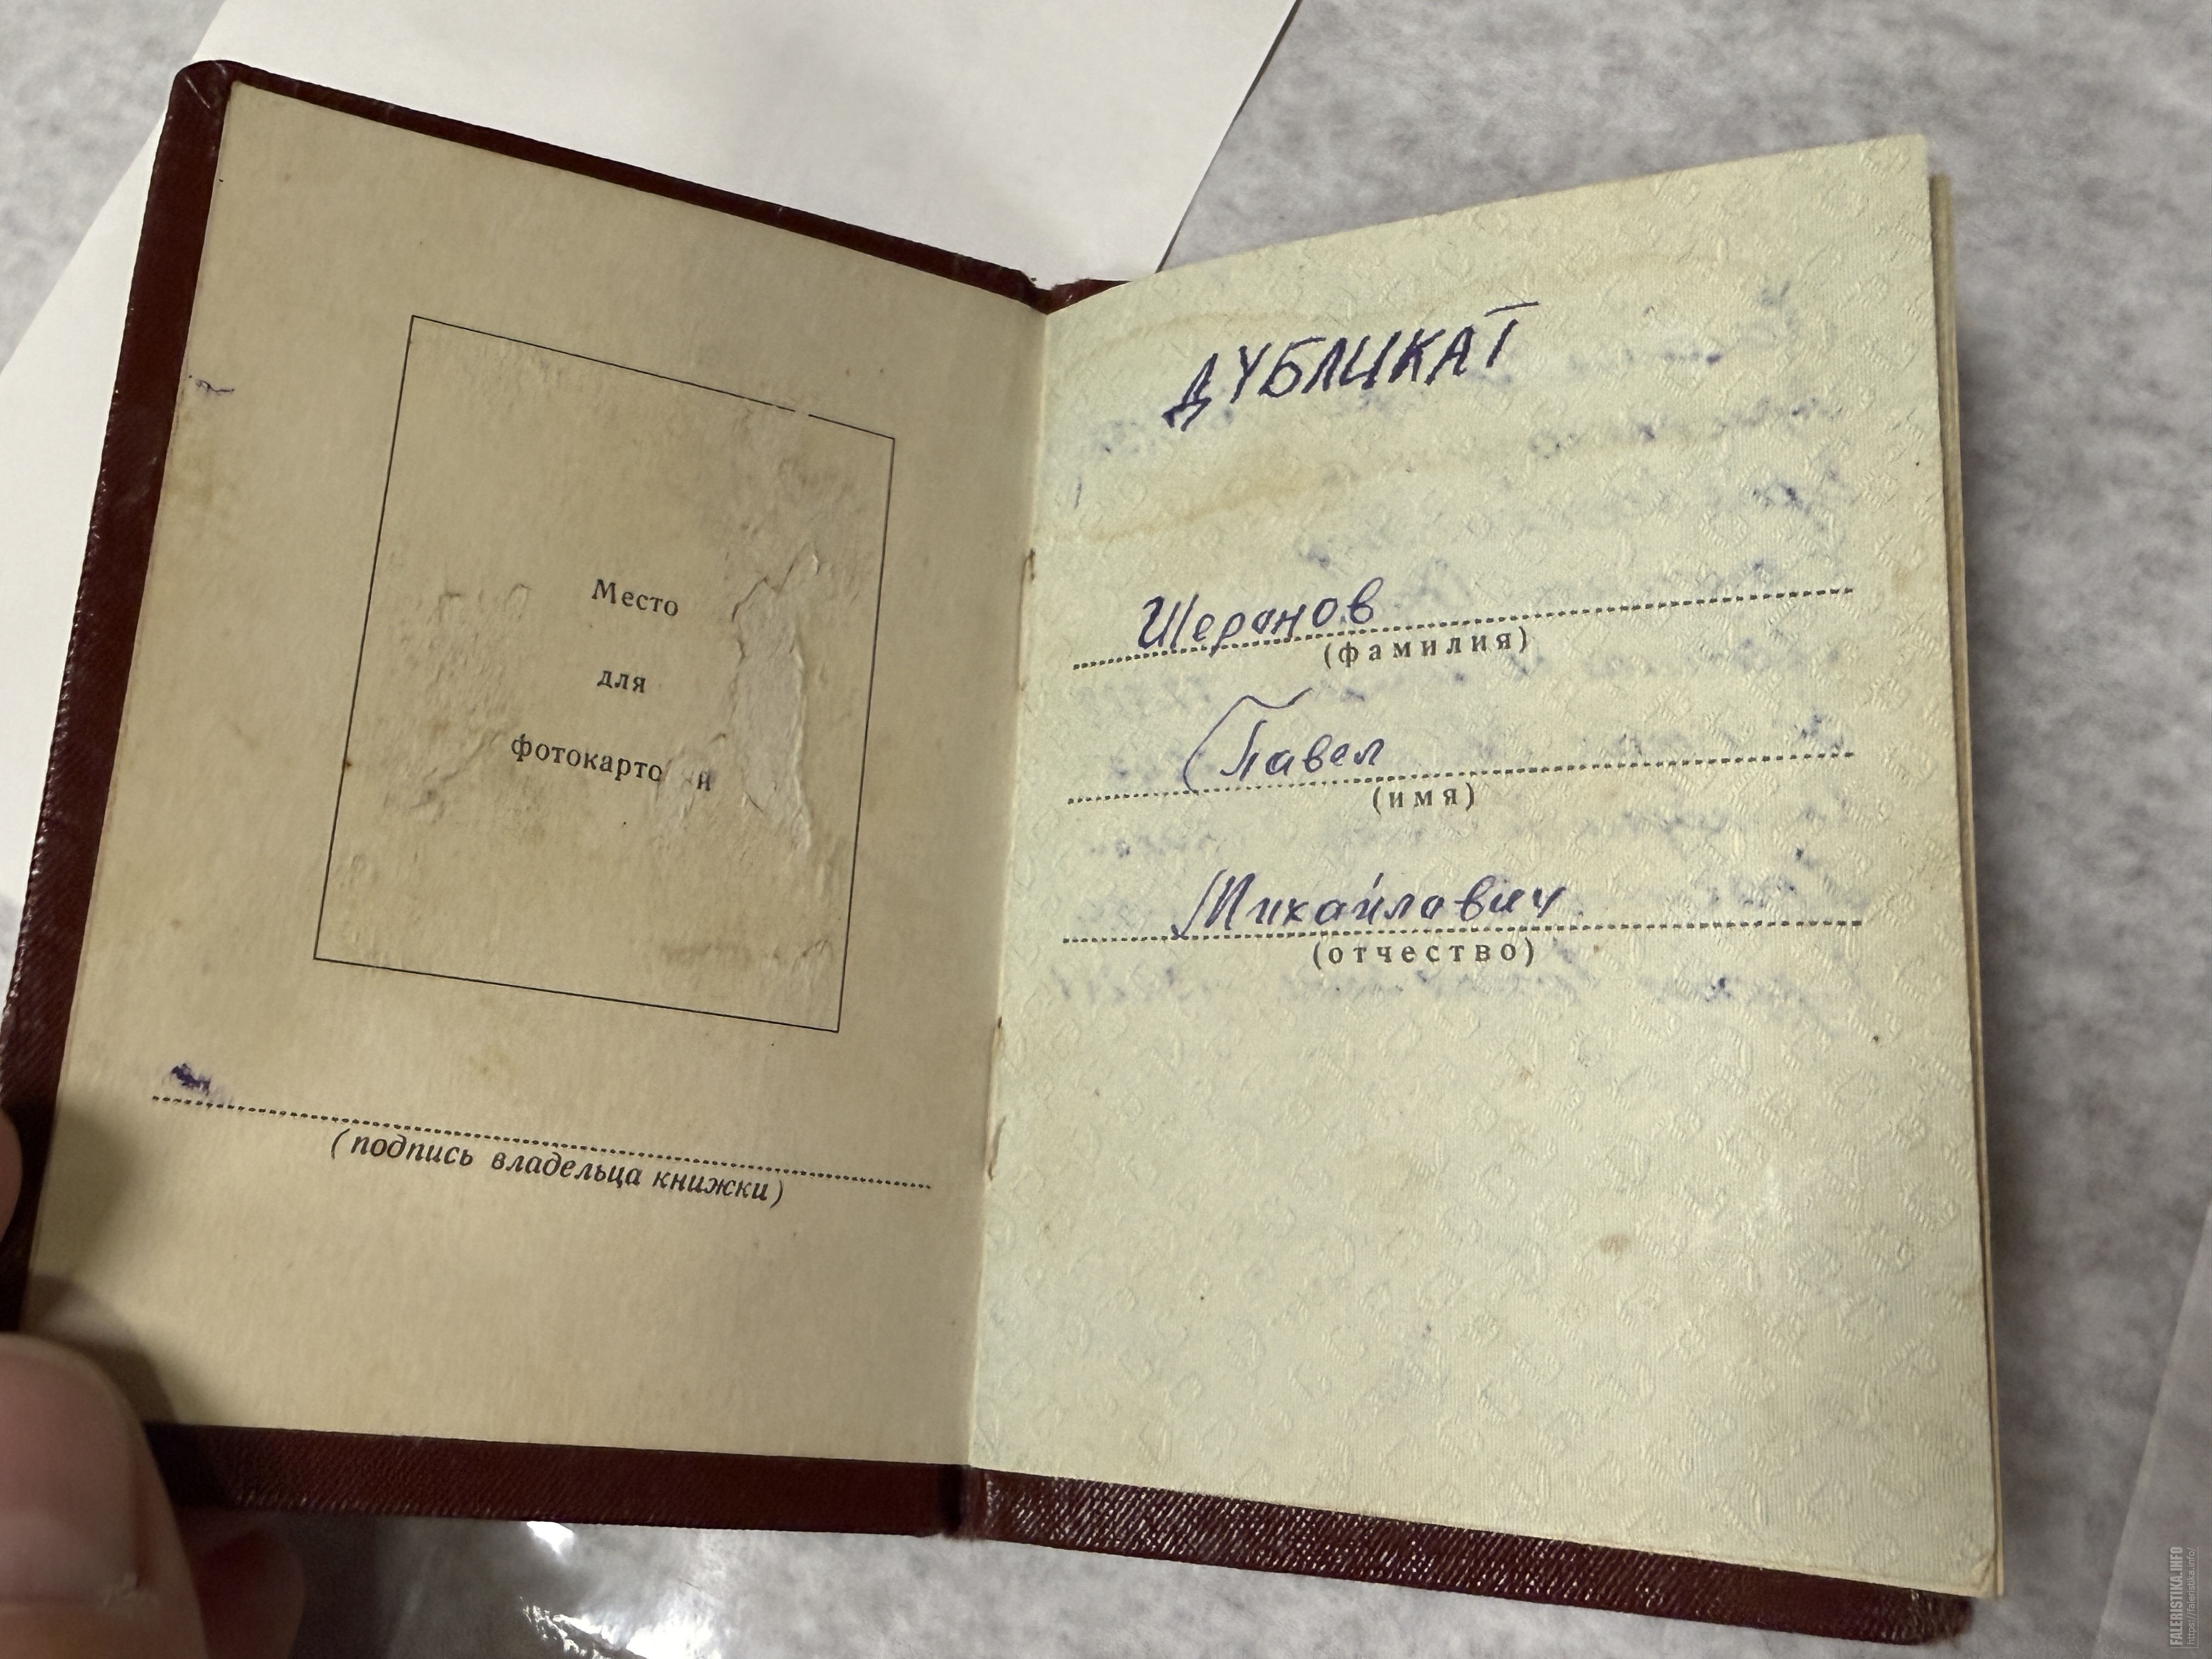 Место
для
фотокарто
(подпись владельца книжки)
ДУБЛИКАТ
Шеранов
(фамилия)
Павел
(имя)
Михайлович
(отчество)
FALERISTIKA.INFO
https://faleristika.info/